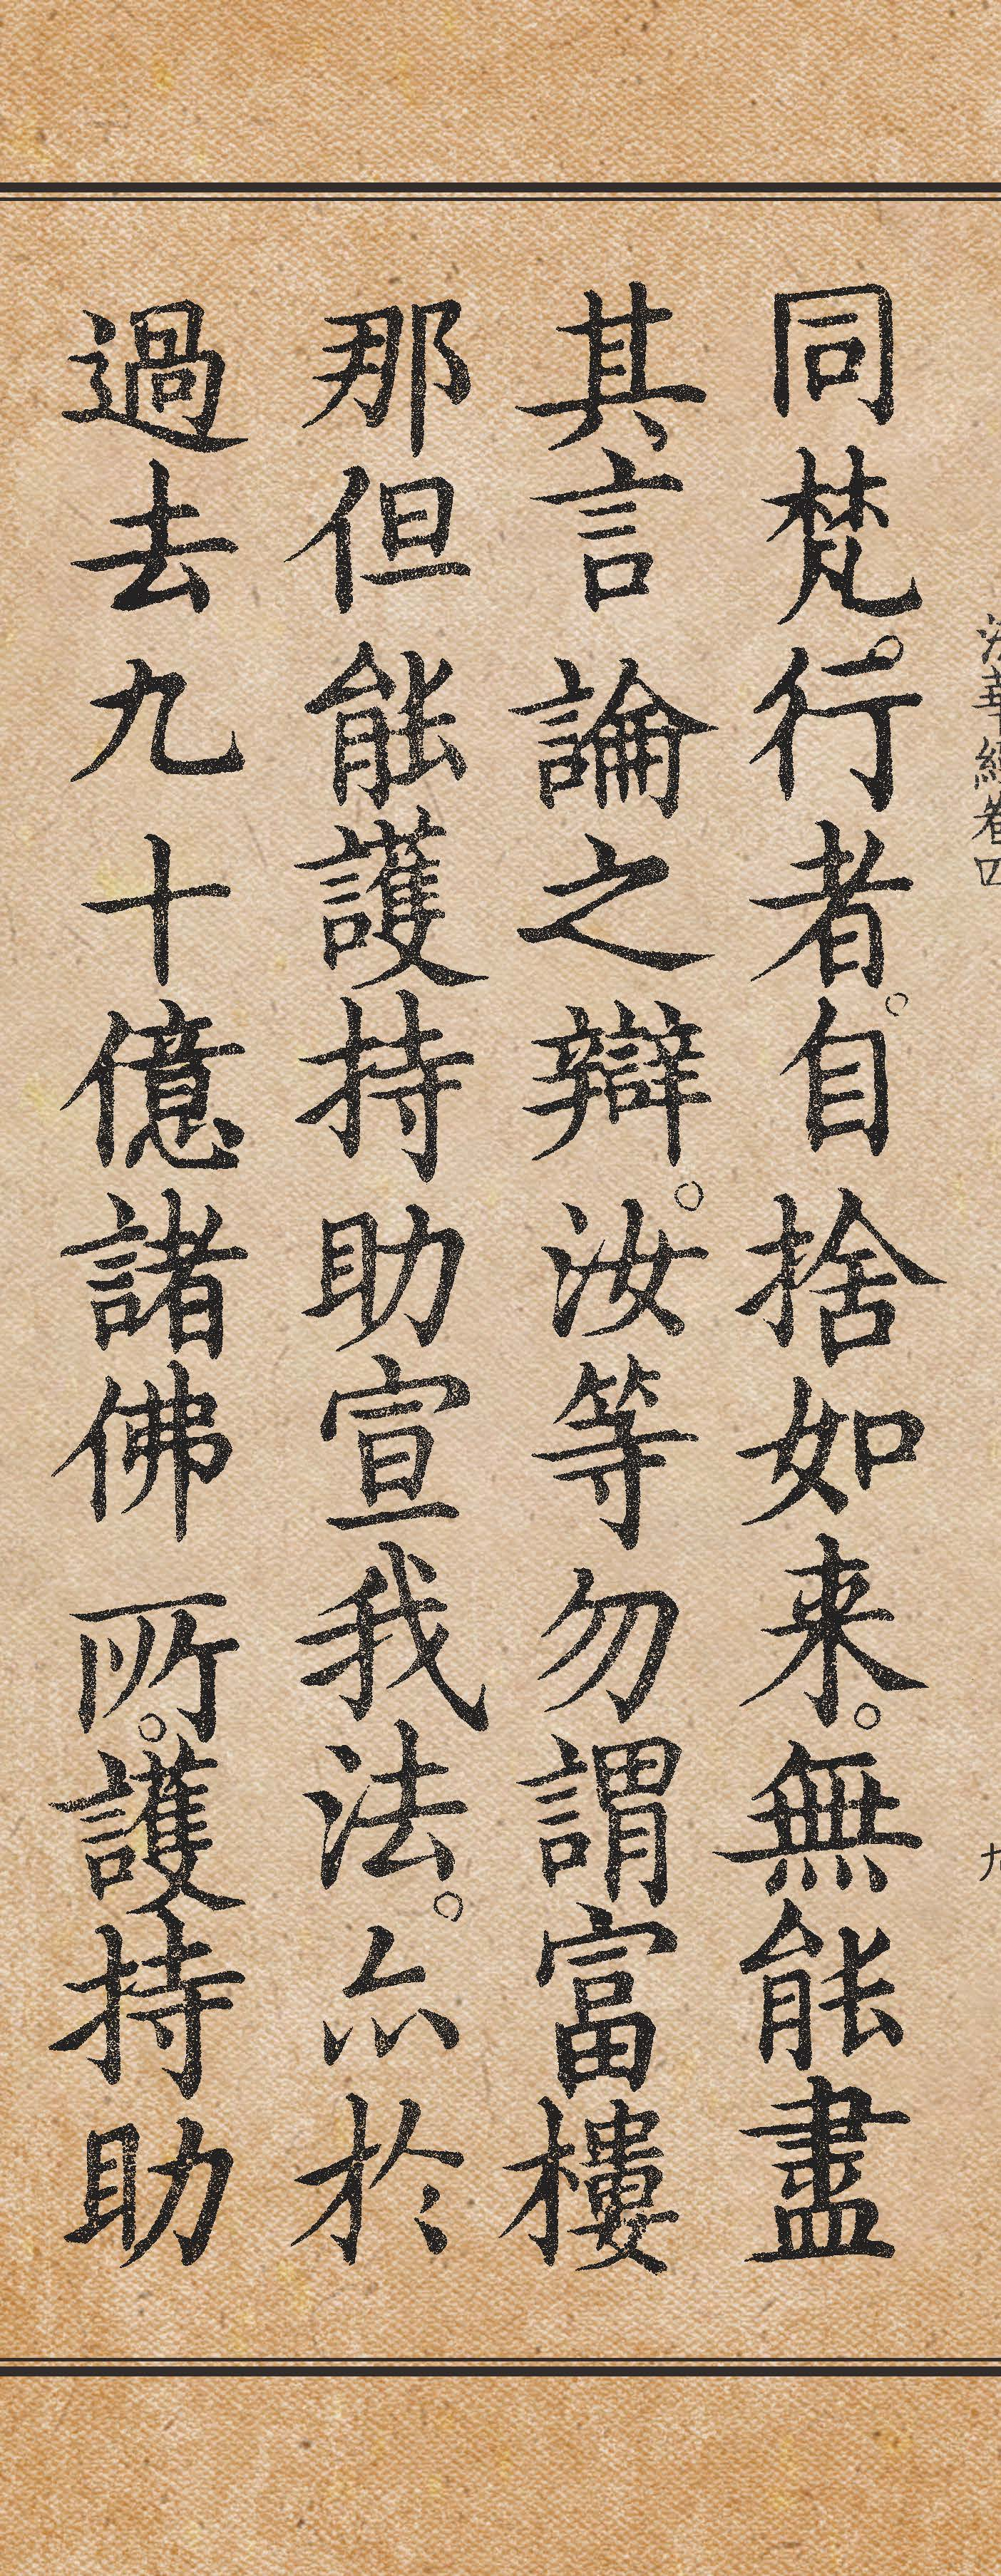 法華經卷四
九
同梵行者。自捨如来。無能盡
其言論之辯。汝等勿謂富樓
那但能護持助宣我法。亦於
過去九十億諸佛所。護持助